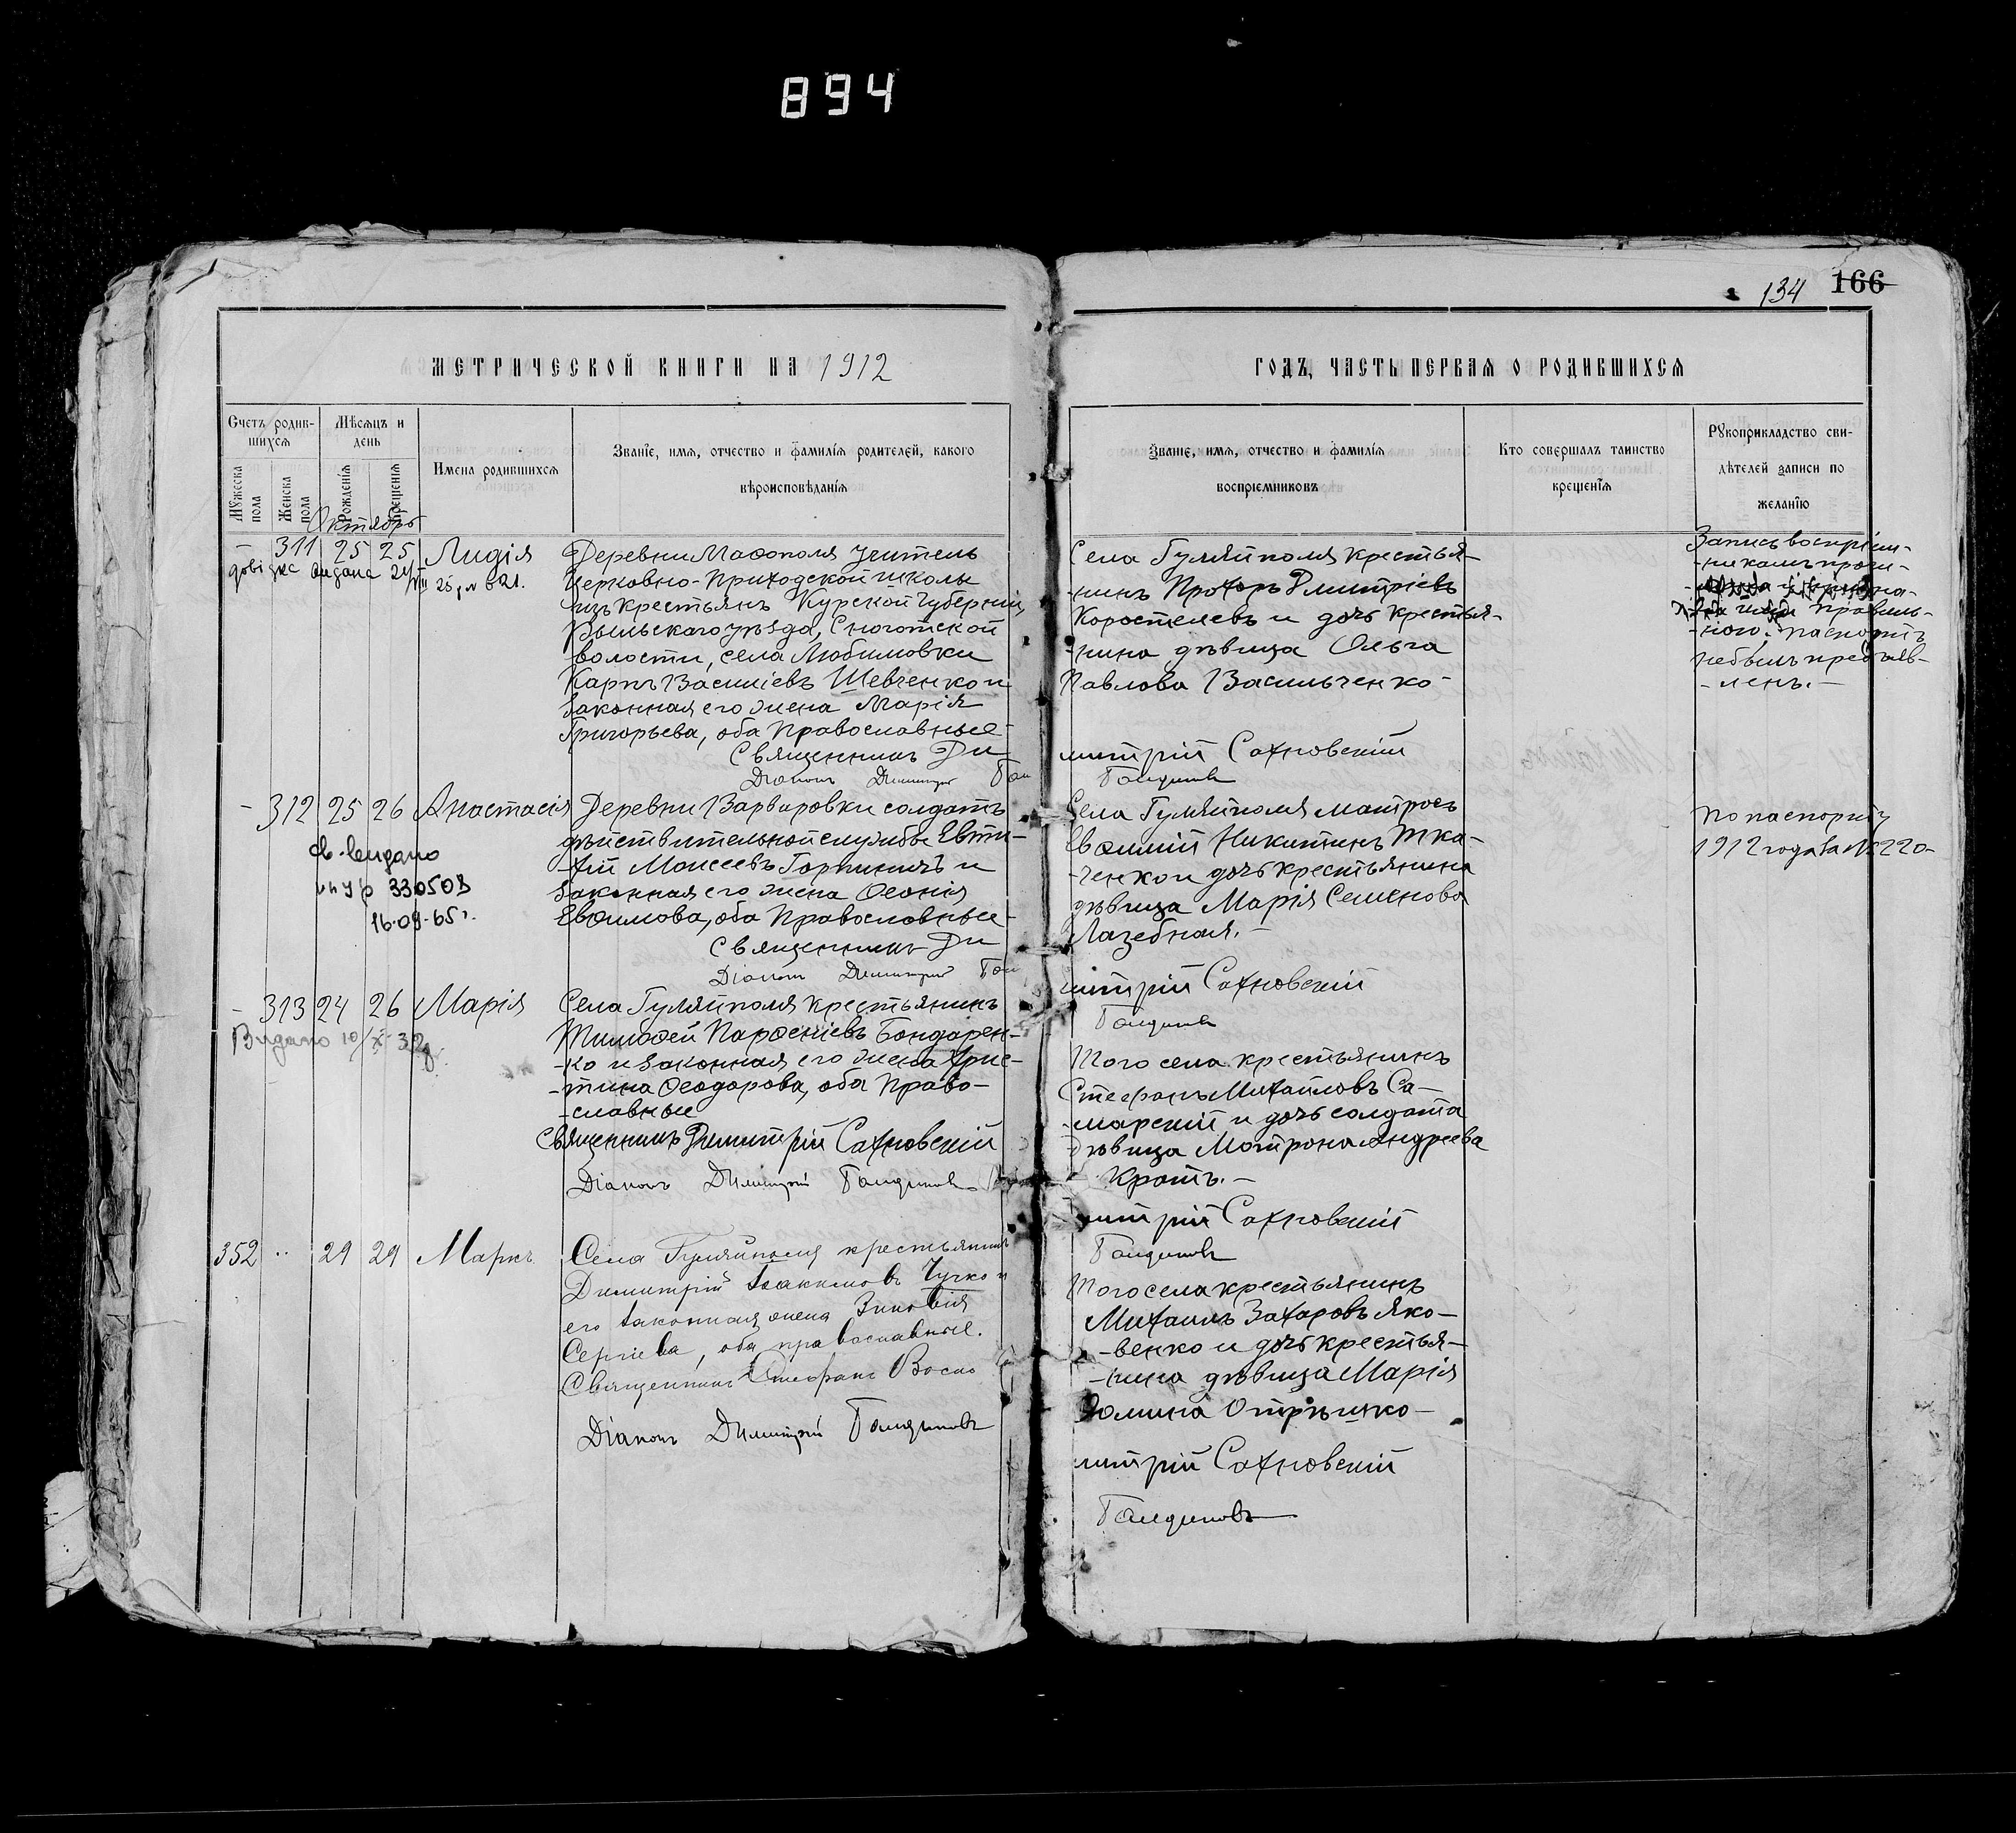 894
134 166
МЕТРИЧЕСКОЙ КНИГИ НА 1912
ГОДЪ, ЧАСТЬ ПЕРВАЯ О РОДИВШИХСЯ
Счетъ родив-
шихся
Мужеска пола
Женска пола
Мѣсяцъ и
день
Рожденія
Крещенія
Имена родившихся
Званіе, имя, отчество и фамилія родителей, какого
вѣроисповѣданія
Званіе, имя, отчество и фамилія
воспріемниковъ
Кто совершалъ таинство
крещенія
Рукоприкладство сви-
дѣтелей записи по
желанію
Октябрь
- 311 25 25 Лидія
видана
Деревни Марфополя учитель
Церковно-Приходской школы
изъ крестьянъ Курской губерніи,
Рыльскаго уѣзда, Сноготской
волости, села Любимовки
Карпъ Василіевъ Шевченко и
законная его жена Марія
Григорьева, оба Православные-
Священникъ Ди
Діаконъ Димитрій
Села Гуляйполя крестья-
-нинъ Прохоръ Дмитріевъ
Коростелевъ и дочь крестья-
-нина дѣвица Ольга
Павлова Васильченко-
митрій Сахновскій
Запись воспріем-
-никамъ
правиль-
-ною. паспортъ
небылъ предъяв-
-ленъ.-
- 312 25 26 Анастасія
св. видано
330503
16.09.65г.
Деревни Варваровки солдатъ
дѣйствительной службы Евти-
-хій Моисеевъ Горпиничъ и
законная его жена Ѳеонія
Евѳимова, оба Православные-
Священникъ Ди
Діаконъ Димитрій
Села Гуляйполя матросъ
Евѳимій Никитинъ Тка-
-ченко и дочь крестьянина
дѣвица Марія Семенова
Лазебная.-
митрій Сахновскій
По паспорту
1912 года за № 220-
- 313 24 26 Марія
Видано 10/X-32
Села Гуляйполя крестьянинъ
Тимоѳей Парѳеніевъ Бондарен-
-ко и законная его жена Хрис-
-тина Ѳеодорова, оба Право-
-славные
Священникъ Димитрій Сахновскій
Діаконъ Димитрій
Того села крестьянинъ
Стефанъ Михайловъ Са-
-марскій и дочь солдата
дѣвица Мотрона Андреева
Кротъ.-
митрій Сахновскій
352 .. 29 29 Маркъ
Села Гуляйполя крестьянинъ
Димитрій Іоакимовъ Чучко и
его законная жена Зиновія
Сергіева, оба православные.
Священникъ Стефанъ Воско
Діаконъ Димитрій
Того села крестьянинъ
Михаилъ Захаровъ Яко-
-венко и дочь крестья-
-нина дѣвица Марія
Ѳомина Отрѣшко-
митрій Сахновскій